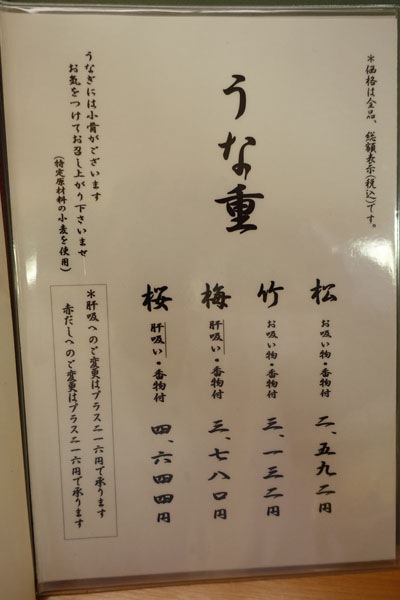 ＊価格は全品、総額表示(税込)です。
うな重
松 お吸い物・香物付 二、五九二円
竹 お吸い物・香物付 三、一三二円
梅 肝吸い・香物付 三、七八〇円
桜 肝吸い・香物付 四、六四四円
うなぎには小骨がございます
お気をつけてお召し上がり下さいませ
(特定原材料の小麦を使用)
＊肝吸へのご変更はプラス二一六円で承ります
赤だしへのご変更はプラス二一六円で承ります